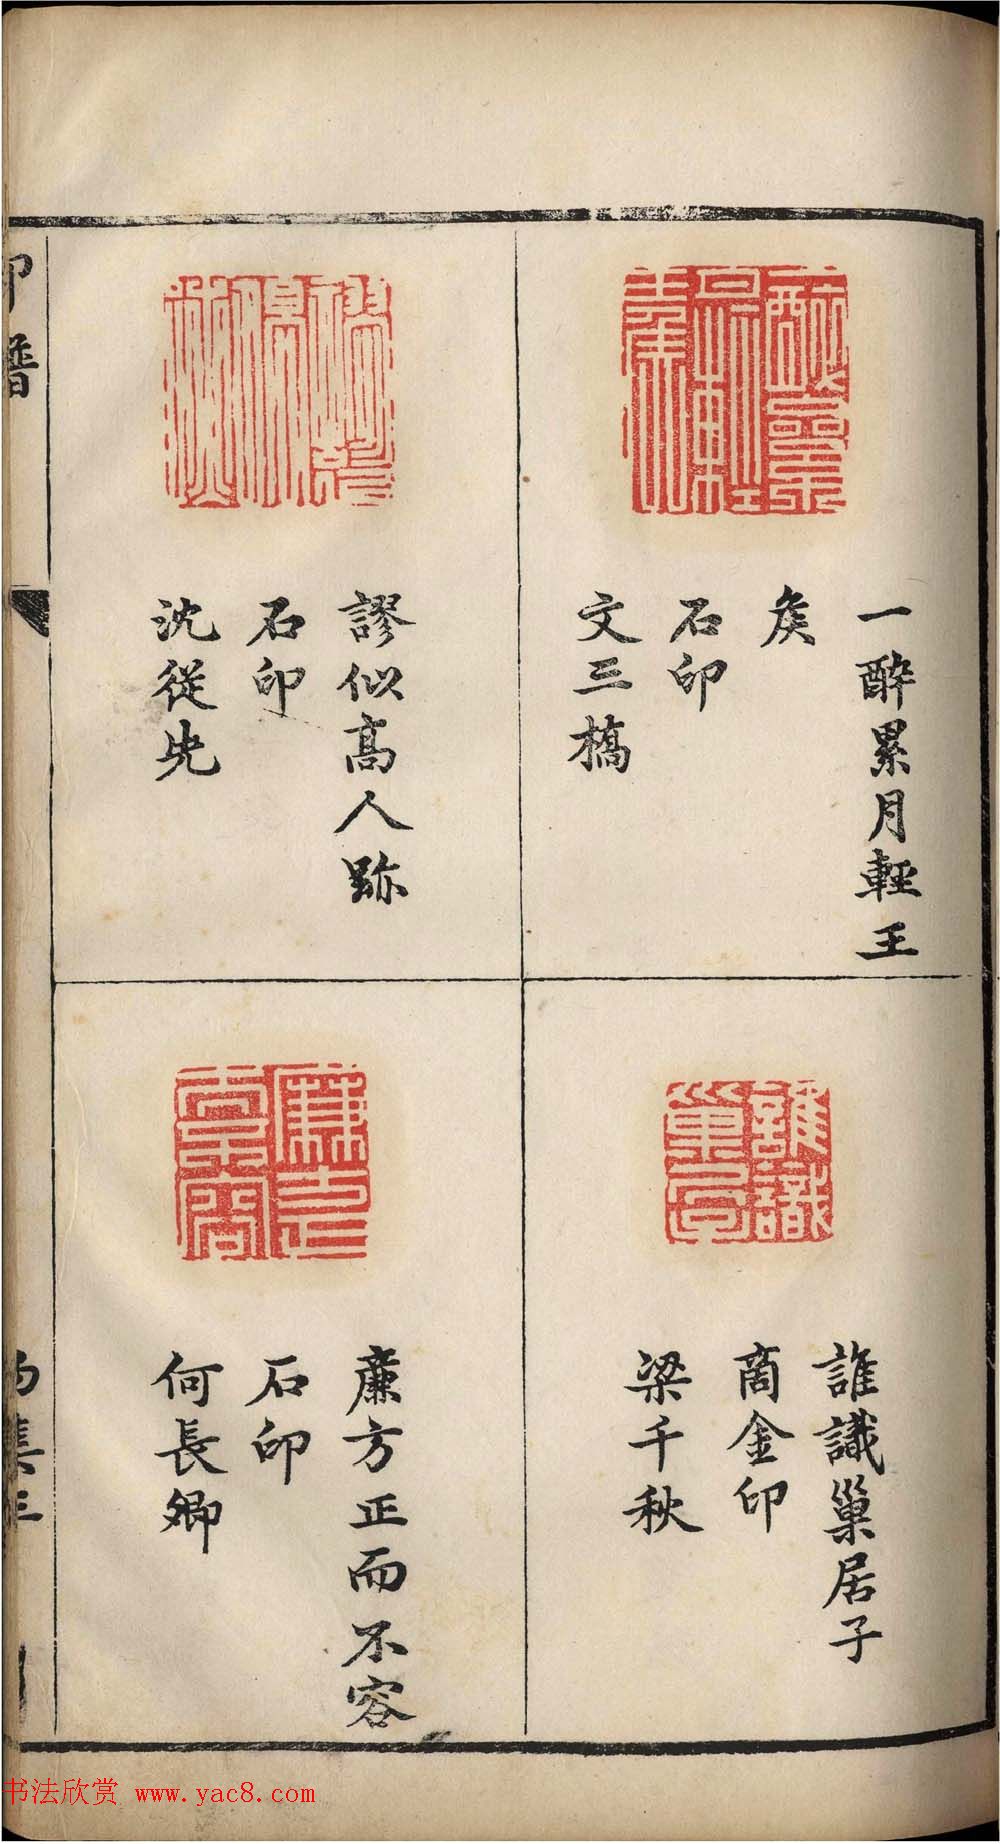 一醉累月輕王
矦
石印
文三橋
謬似高人跡
石印
沈從先
誰識巢居子
商金印
梁千秋
廉方正而不容
石印
何長卿
印譜
書法欣赏 www.yac8.com